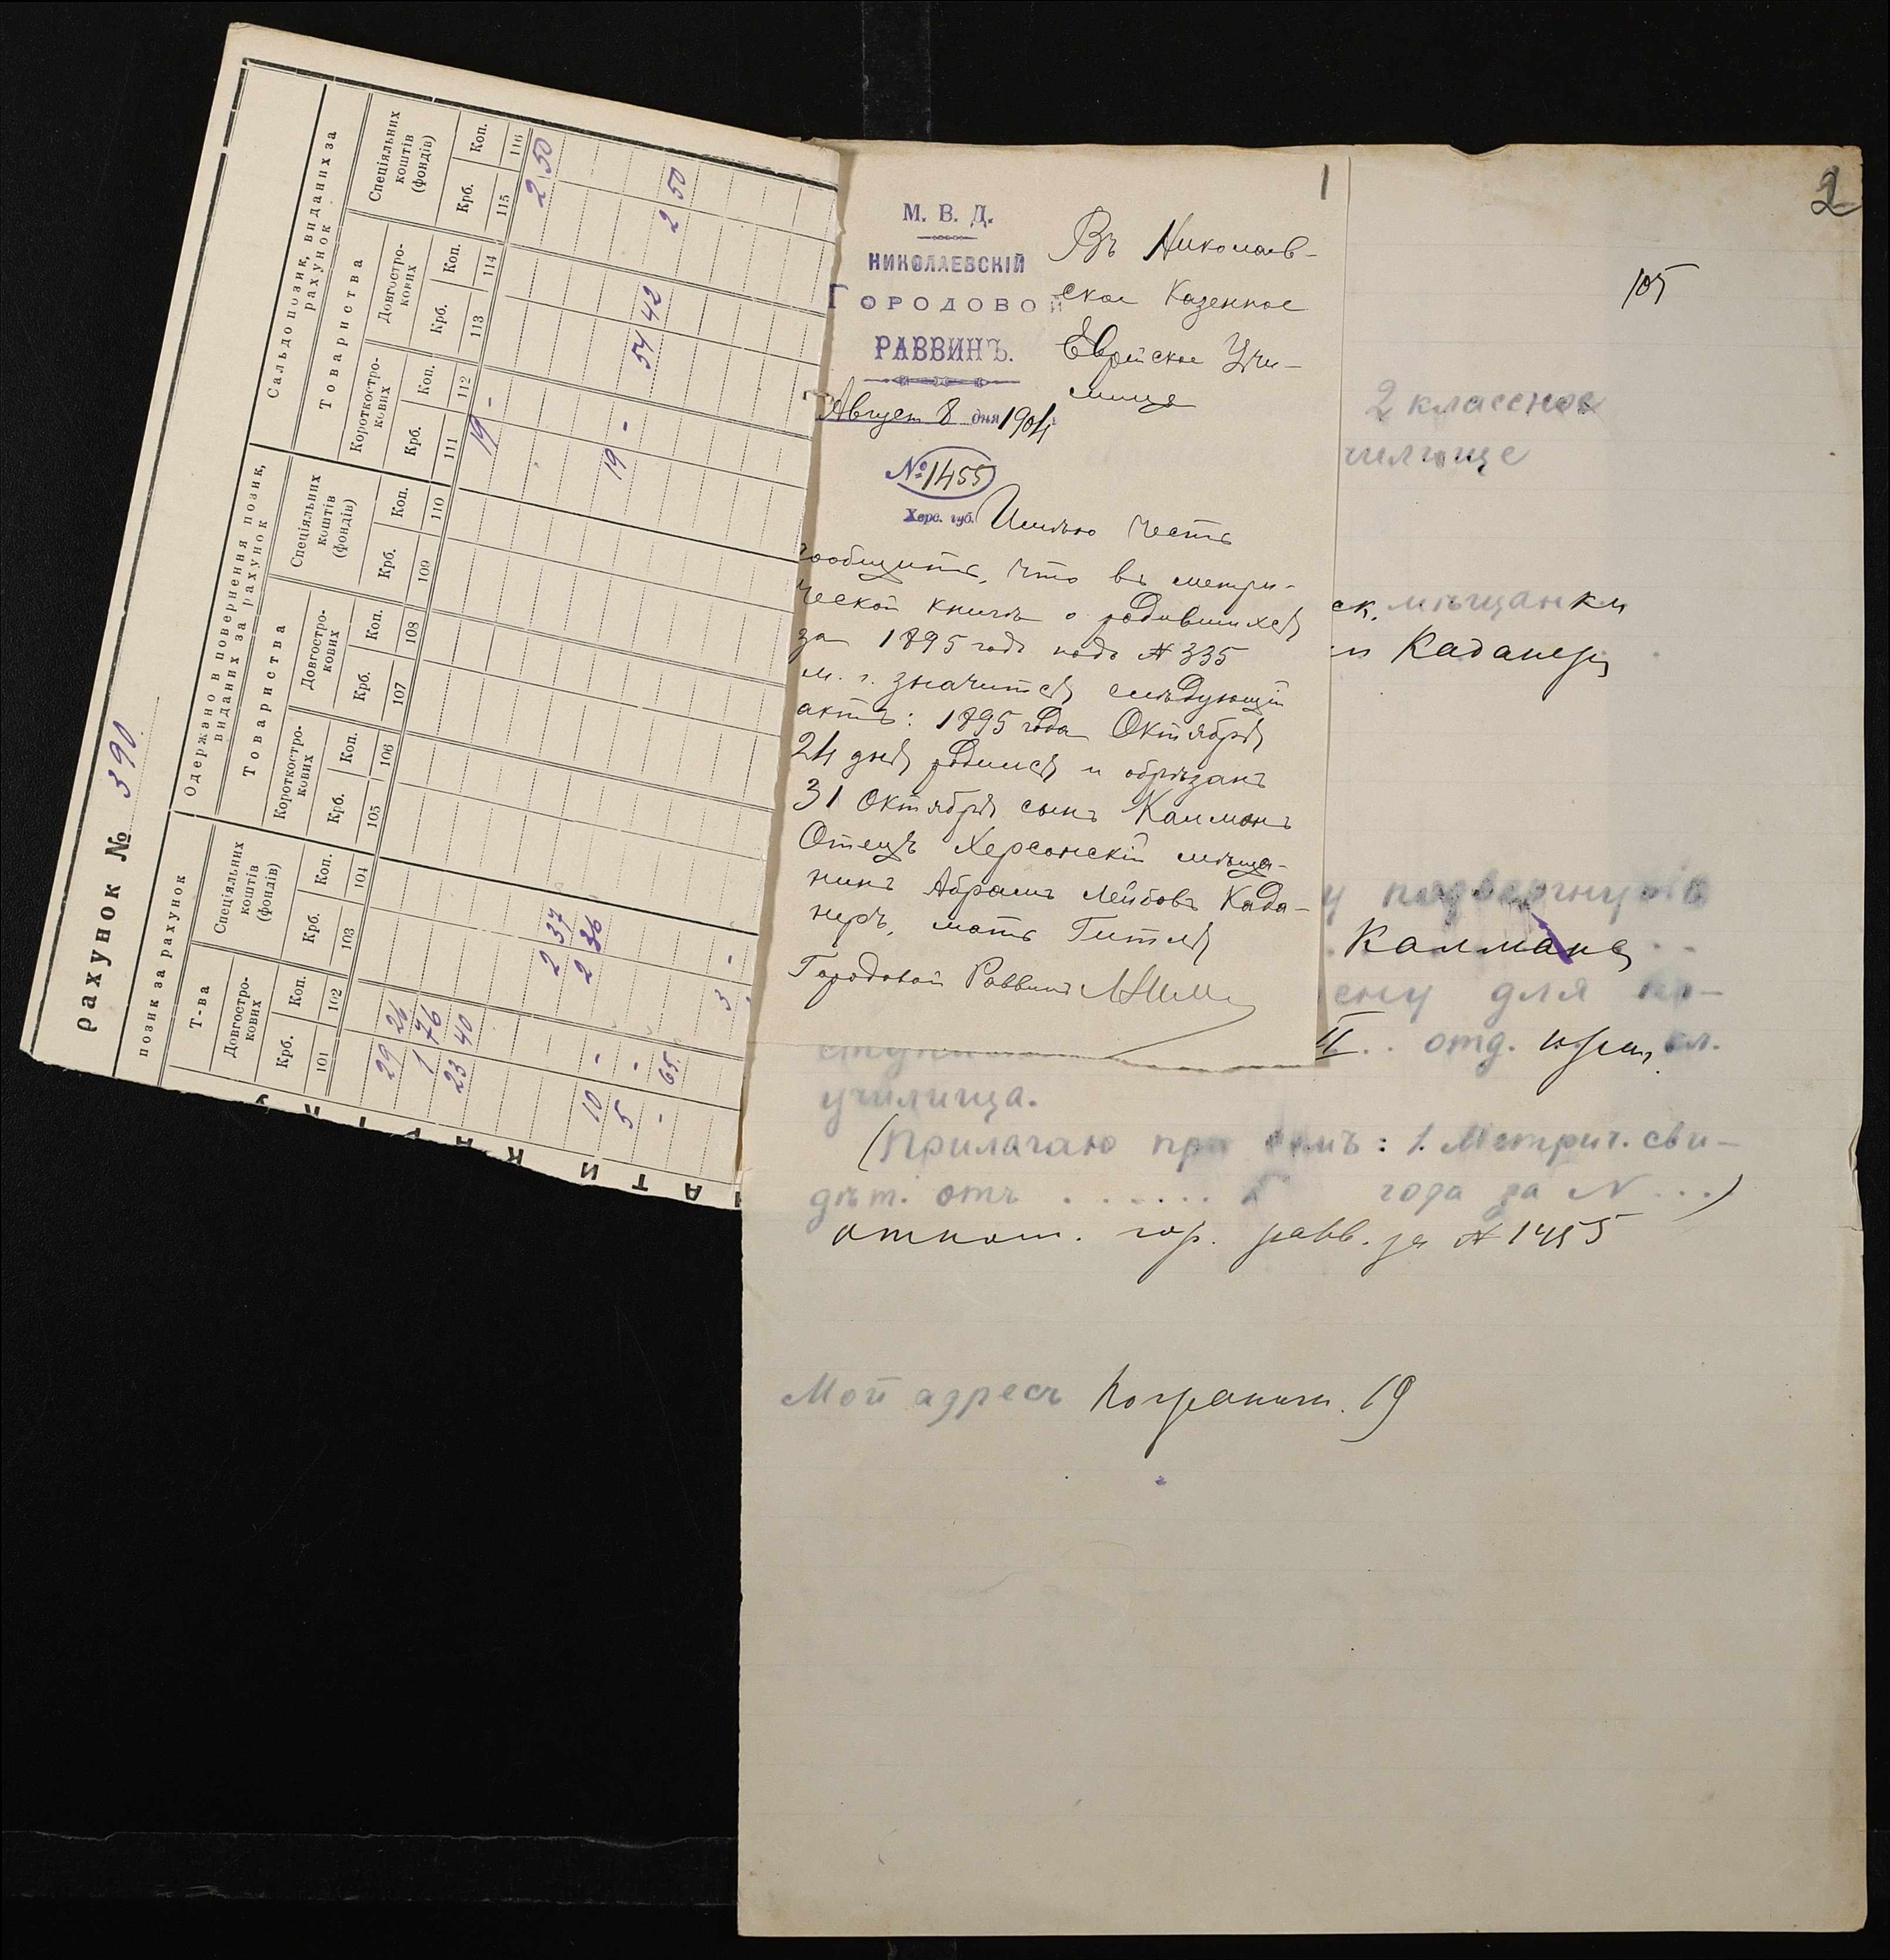 рахунок № 390
позик за рахунок
Т-ва
Довгостро-
кових
Спеціяльних
коштів
(фондів)
Крб. Коп. Крб. Коп.
101 102 103 104
29 26
1 76
23 40
2 37
10 - 2 36
5 -
- 65
3 -
Одержано в повернення позик,
виданих за рахунок
Товариства
Короткостро-
кових
Довгостро-
кових
Спеціяльних
коштів
(фондів)
Крб. Коп. Крб. Коп. Крб. Коп.
105 106 107 108 109 110
Сальдо позик, виданих за
рахунок
Товариства
Короткостро-
кових
Довгостро-
кових
Спеціяльних
коштів
(фондів)
Крб. Коп. Крб. Коп. Крб. Коп.
111 112 113 114 115 116
19 - 2 50
19 - 54 42 2 50
1
М. В. Д.
НИКОЛАЕВСКІЙ
ГОРОДОВОЙ
РАВВИНЪ.
Август 8 дня 1904
№ 1455
Херс. губ.
Въ Николаев-
ское Казенное
Еврейское Учи-
лище
Имѣю честь
сообщить, что въ метри-
ческой книгѣ о родившихся
за 1895 годъ подъ № 335
м. г. значится слѣдующій
актъ: 1895 года Октября
24 дня родился и обрѣзанъ
31 Октября сынъ Калманъ
Отецъ Херсонскій мѣща-
нинъ Абрамъ Лейбовъ Када-
неръ, мать Гитля
Городовой Раввинъ
2
105
2 классное
чилище
ск. мѣщанки
Каданеръ
у подвергнуть
Калмана
ену для по-
II .. отд. приг. кл.
училища.
(Прилагаю при семъ: 1. Метрич. сви-
дѣт. отъ ...... года за N ...)
отнош. гор. равв. за № 1455
Мой адресъ Погранич. 19